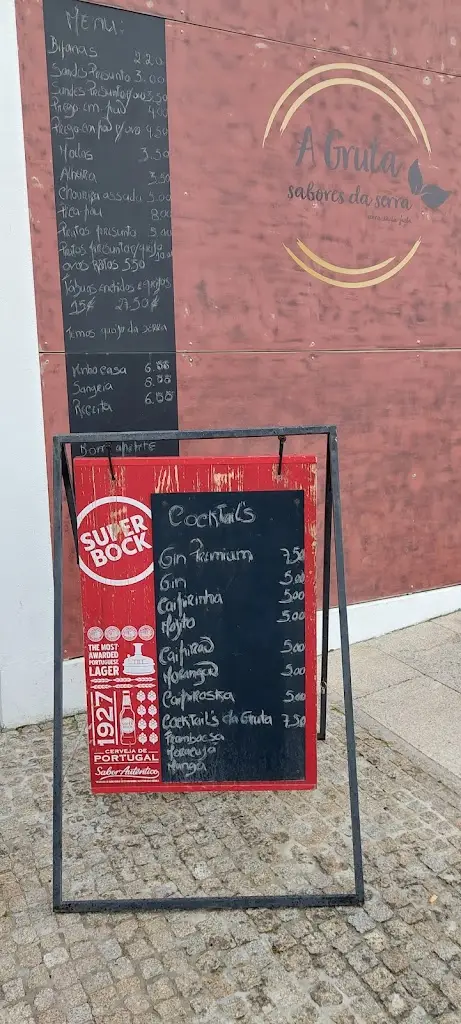 MENU:
Bifanas 2.20
Sandes Presunto 3.00
Sandes Presunto/ovo 3.50
Prego em pão 4.00
Prego em pão c/ovo 4.50
3.50
Alheira 3.50
Chouriça assada 5.00
Pica pau 8.00
Pratos presunto 5.00
Pratos presunto/queijo
ovos Rotos 5.50
Tábuas enchidos e queijos
15€ 27.50€
Temos queijo da serra
Vinho casa 6.00
Sangria 8.00
Receita 6.00
Bom apetite
A Gruta
sabores da serra
SUPER
BOCK
THE MOST
AWARDED
PORTUGUESE
LAGER
1927
CERVEJA DE
PORTUGAL
Sabor Autêntico
Cocktail's
Gin Premium 7,50
Gin 5,00
Caipirinha 5.00
Mojito 5,00
Caipirão 5.00
Morangão 5.00
Caipiroska 5.00
Cocktail's da Gruta 7,50
Framboesa
Maracujá
Manga